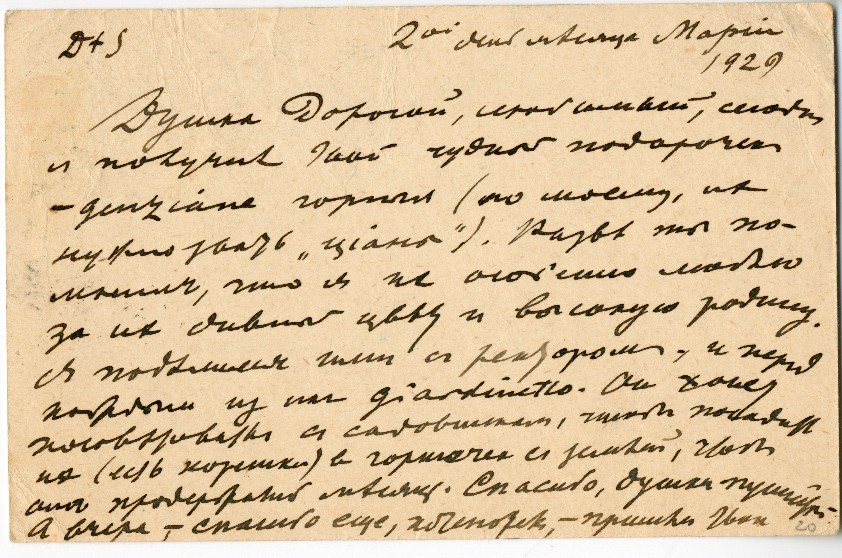 D+S
2ой день месяца Маріи
1929
Душка Дорогой, любимый, сегодня
я получил твой чудный подарочек
- genziane горныя (по моему, не
нужно звать „ціаны“). Развѣ ты по-
мнил, что я их особенно люблю
за их дивный цвѣт и высокую родину.
Я подѣлился ими с ректором, и перед
из них giardinetto. Он хочет
посовѣтоваться с садовником, чтобы посадить
их (есть корешки) в горшочек с землей, чтобы
они продержались месяц. Спасибо, душка
А вчера, – спасибо еще, – пришли твои
20